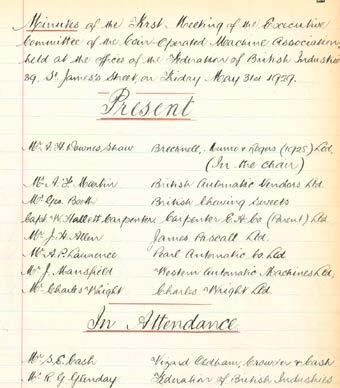 Minutes of the First Meeting of the Executive
Committee of the Coin Operated Machine Association,
held at the offices of the Federation of British Industries
39, St. James's Street, on Friday May 31st 1929.
Present
Mr A. H. Downes-Shaw Brecknell, Munro & Rogers (1928) Ltd.
(In the chair)
Mr A. F. Martin British Automatic Vendors Ltd.
Mr Geo. Booth British Chewing Sweets
Capt. W. Hallett Carpenter Carpenter C. H. Co (Parent) Ltd.
Mr J. H. Allen James Pascall Ltd.
Mr A. P. Lawrence Pearl Automatic Co. Ltd
Mr J. Mansfield Western Automatic Machines Ltd,
Mr Charles Wright Charles Wright Ltd.
In Attendance
Mr S. E. Cash Vizard Oldham, Crowder & Cash
Mr R. G. Glenday Federation of British Industries